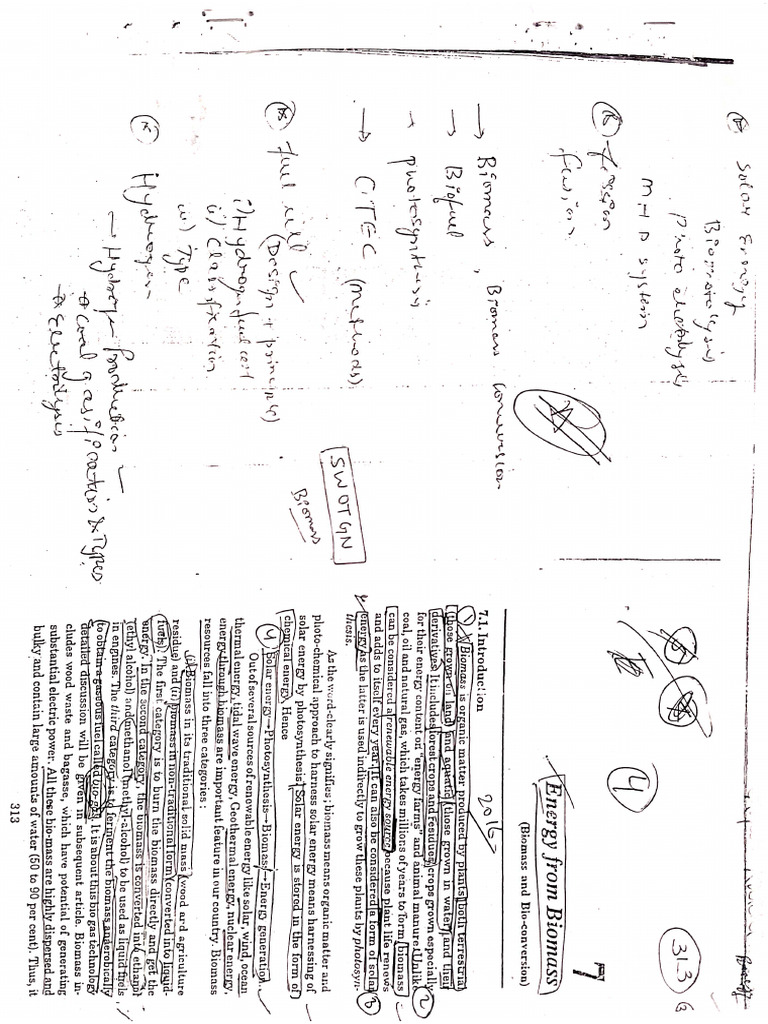 Solar Energy
Biophotolysis
Photo electrolysis
MHD system
Fission
fusion
→ Biomass, Biomass conversion
→ Biofuel
→ photosynthesis
→ OTEC (Methods)
Fuel cell (Design + principle)
i) Hydrogen fuel cell
ii) Classification
iii) Type
Hydrogen
→ Hydrogen Production
→ Coal gasification & Types
→ Electrolysis
SWOTGN
Biomass
4
313
7
Energy from Biomass
(Biomass and Bio-conversion)
2016
7.1. Introduction
1 Biomass is organic matter produced by plants, both terrestrial
(those grown on land) and aquatic (those grown in water) and their
derivatives. It includes forest crops and residues, crops grown especially
for their energy content on "energy farms" and animal manure. Unlike 2
coal, oil and natural gas, which takes millions of years to form, biomass
can be considered a renewable energy source because plant life renews
and adds to itself every year. It can also be considered a form of solar 3
energy as the latter is used indirectly to grow these plants by photosyn-
thesis.
As the word clearly signifies; biomass means organic matter and
photo-chemical approach to harness solar energy means harnessing of
solar energy by photosynthesis. Solar energy is stored in the form of
chemical energy. Hence
4 Solar energy→Photosynthesis→Biomass→Energy generation.
Out of several sources of renewable energy like solar, wind, ocean
thermal energy, tidal wave energy, Geothermal energy, nuclear energy,
energy through biomass are important feature in our country. Biomass
resources fall into three categories :
(i) Biomass in its traditional solid mass (wood and agriculture
residue) and (ii) biomass in non-traditional form (converted into liquid
fuels). The first category is to burn the biomass directly and get the
energy. In the second category, the biomass is converted into ethanol
(ethyl alcohol) and methanol (methyl-alcohol) to be used as liquid fuels
in engines. The third category is to ferment the biomass anaerobically
to obtain a gaseous fuel called bio-gas. It is about this bio gas technology
detailed discussion will be given in subsequent article. Biomass in-
cludes wood waste and bagasse, which have potential of generating
substantial electric power. All these bio-mass are highly dispersed and
bulky and contain large amounts of water (50 to 90 per cent). Thus, it
313